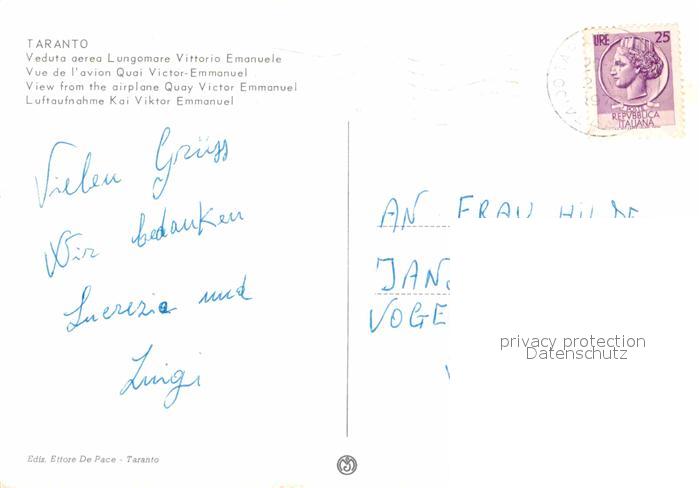 TARANTO
Veduta aerea Lungomare Vittorio Emanuele
Vue de l'avion Quai Victor-Emmanuel
View from the airplane Quay Victor Emmanuel
Luftaufnahme Kai Viktor Emmanuel
LIRE 25
POSTE
REPVBBLICA
ITALIANA
Vielen Grüss
Wir bedanken
Lucrezia und
Luigi
AN FRAU
JAN
VOGE
privacy protection
Datenschutz
Ediz. Ettore De Pace - Taranto